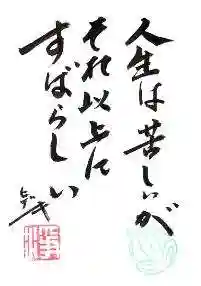 人生は苦しいが
それ以上に
すばらしい